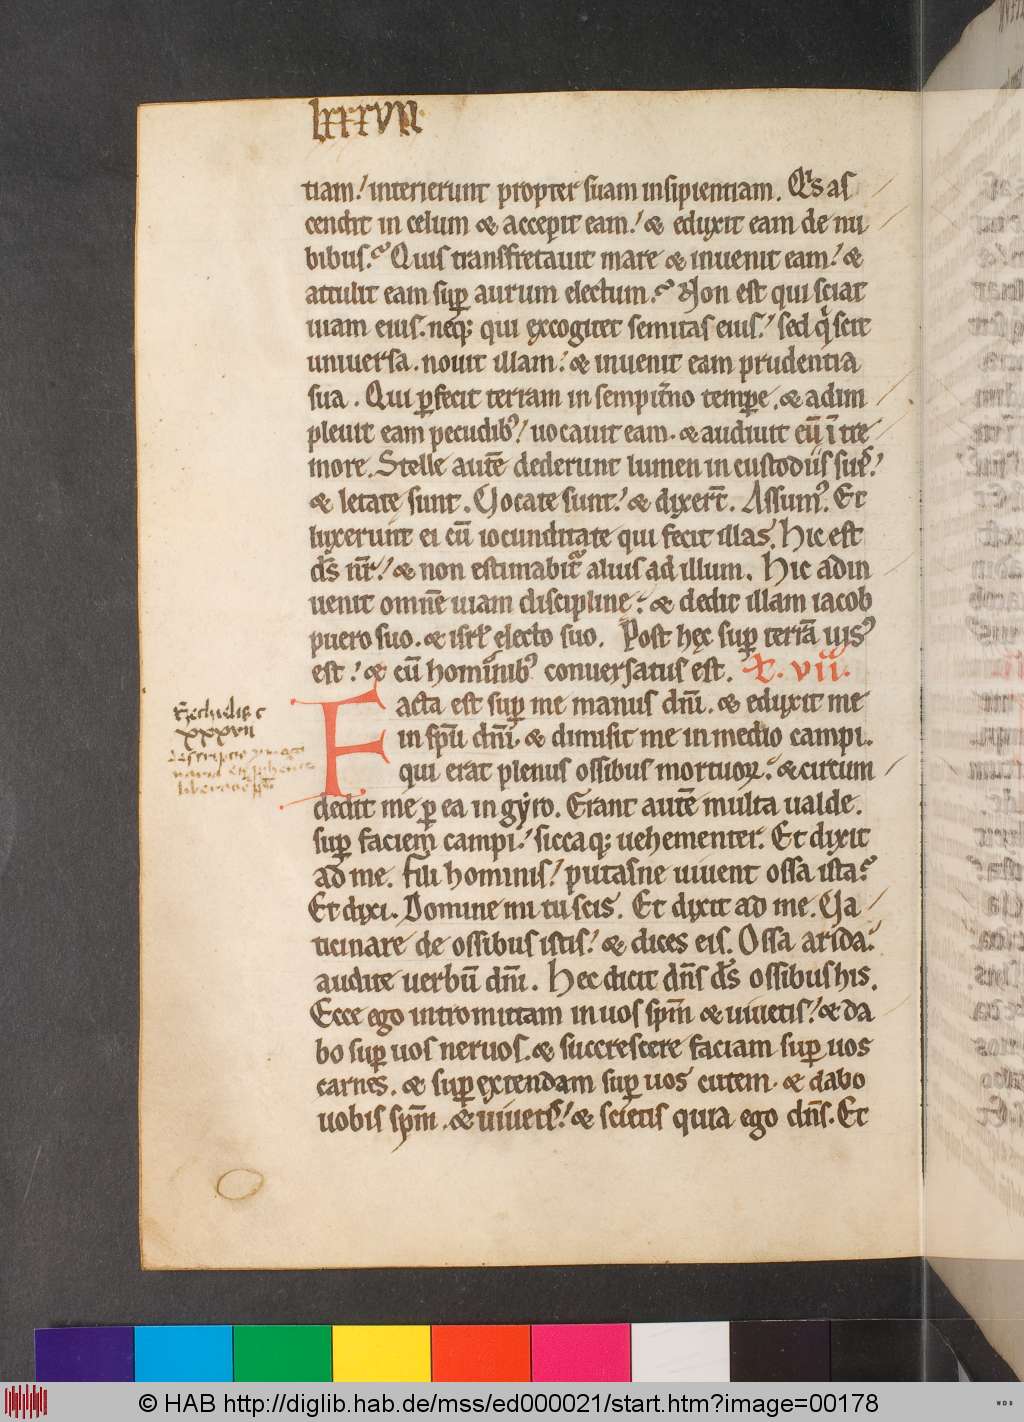 lxxxvii
tiam! interierunt propter suam insipientiam. Qis as
cendit in celum & accepit eam! & eduxit eam de nu
bibus? Quis transfretauit mare & inuenit eam! &
attulit eam sup aurum electum? Non est qui sciat
uiam eius. neq; qui excogitet semitas eius! sed q scit
uniuersa. nouit illam! & inuenit eam prudentia
sua. Qui pfecit terram in sempitno tempe. & adim
pleuit eam pecudib'! uocauit eam. & audiuit eū ī tre
more. Stelle autē dederunt lumen in custodiis suis!
& letate sunt. Uocate sunt! & dixert̄. Assum'. Et
luxerunt ei cū iocunditate qui fecit illas. Hic est
ds̄ nr̄! & non estimabit alius ad illum. Hic adin
uenit omnē uiam discipline! & dedit illam iacob
puero suo. & isrł electo suo. Post hęc sup terrā uis'
est! & cū hominib' conuersatus est. x. vii.
Facta est sup me manus dn̄i. & eduxit me
in spū dn̄i. & dimisit me in medio campi.
qui erat plenus ossibus mortuoꝝ! & circum
dedit me p ea in gẏro. Erant autē multa ualde.
sup faciem campi! siccaq; uehementer. Et dixit
ad me. Fili hominis! putasne uiuent ossa ista?
Et dixi. Domine mi tu scis. Et dixit ad me. Ua
ticinare de ossibus istis! & dices eis. Ossa arida!
audite uerbū dn̄i. Hec dicit dn̄s ds̄ ossibus his.
Ecce ego intromittam in uos spm̄ & uiuetis! & da
bo sup uos neruos. & succrescere faciam sup uos
carnes. & supextendam sup uos cutem. & dabo
uobis spm̄. & uiuetis! & scietis quia ego dn̄s. Et
Ezechielis c
xxxvii
© HAB http://diglib.hab.de/mss/ed000021/start.htm?image=00178